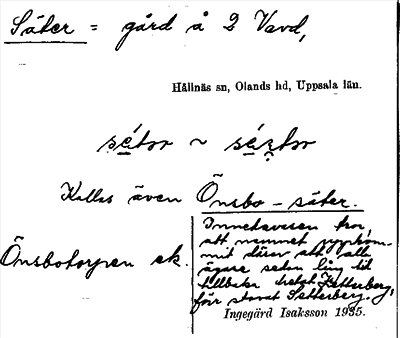 Säter = gård å 2 Vavd,
Hållnäs sn, Olands hd, Uppsala län.
Kallas även Önsbo-säter.
Önsbotorpen ek.
Innehavaren tror,
att namnet uppkom-
mit därav att alla
ägare sedan lång tid
tillbaka hetat Zetterberg,
förr stavat Setterberg.
Ingegärd Isaksson 1935.